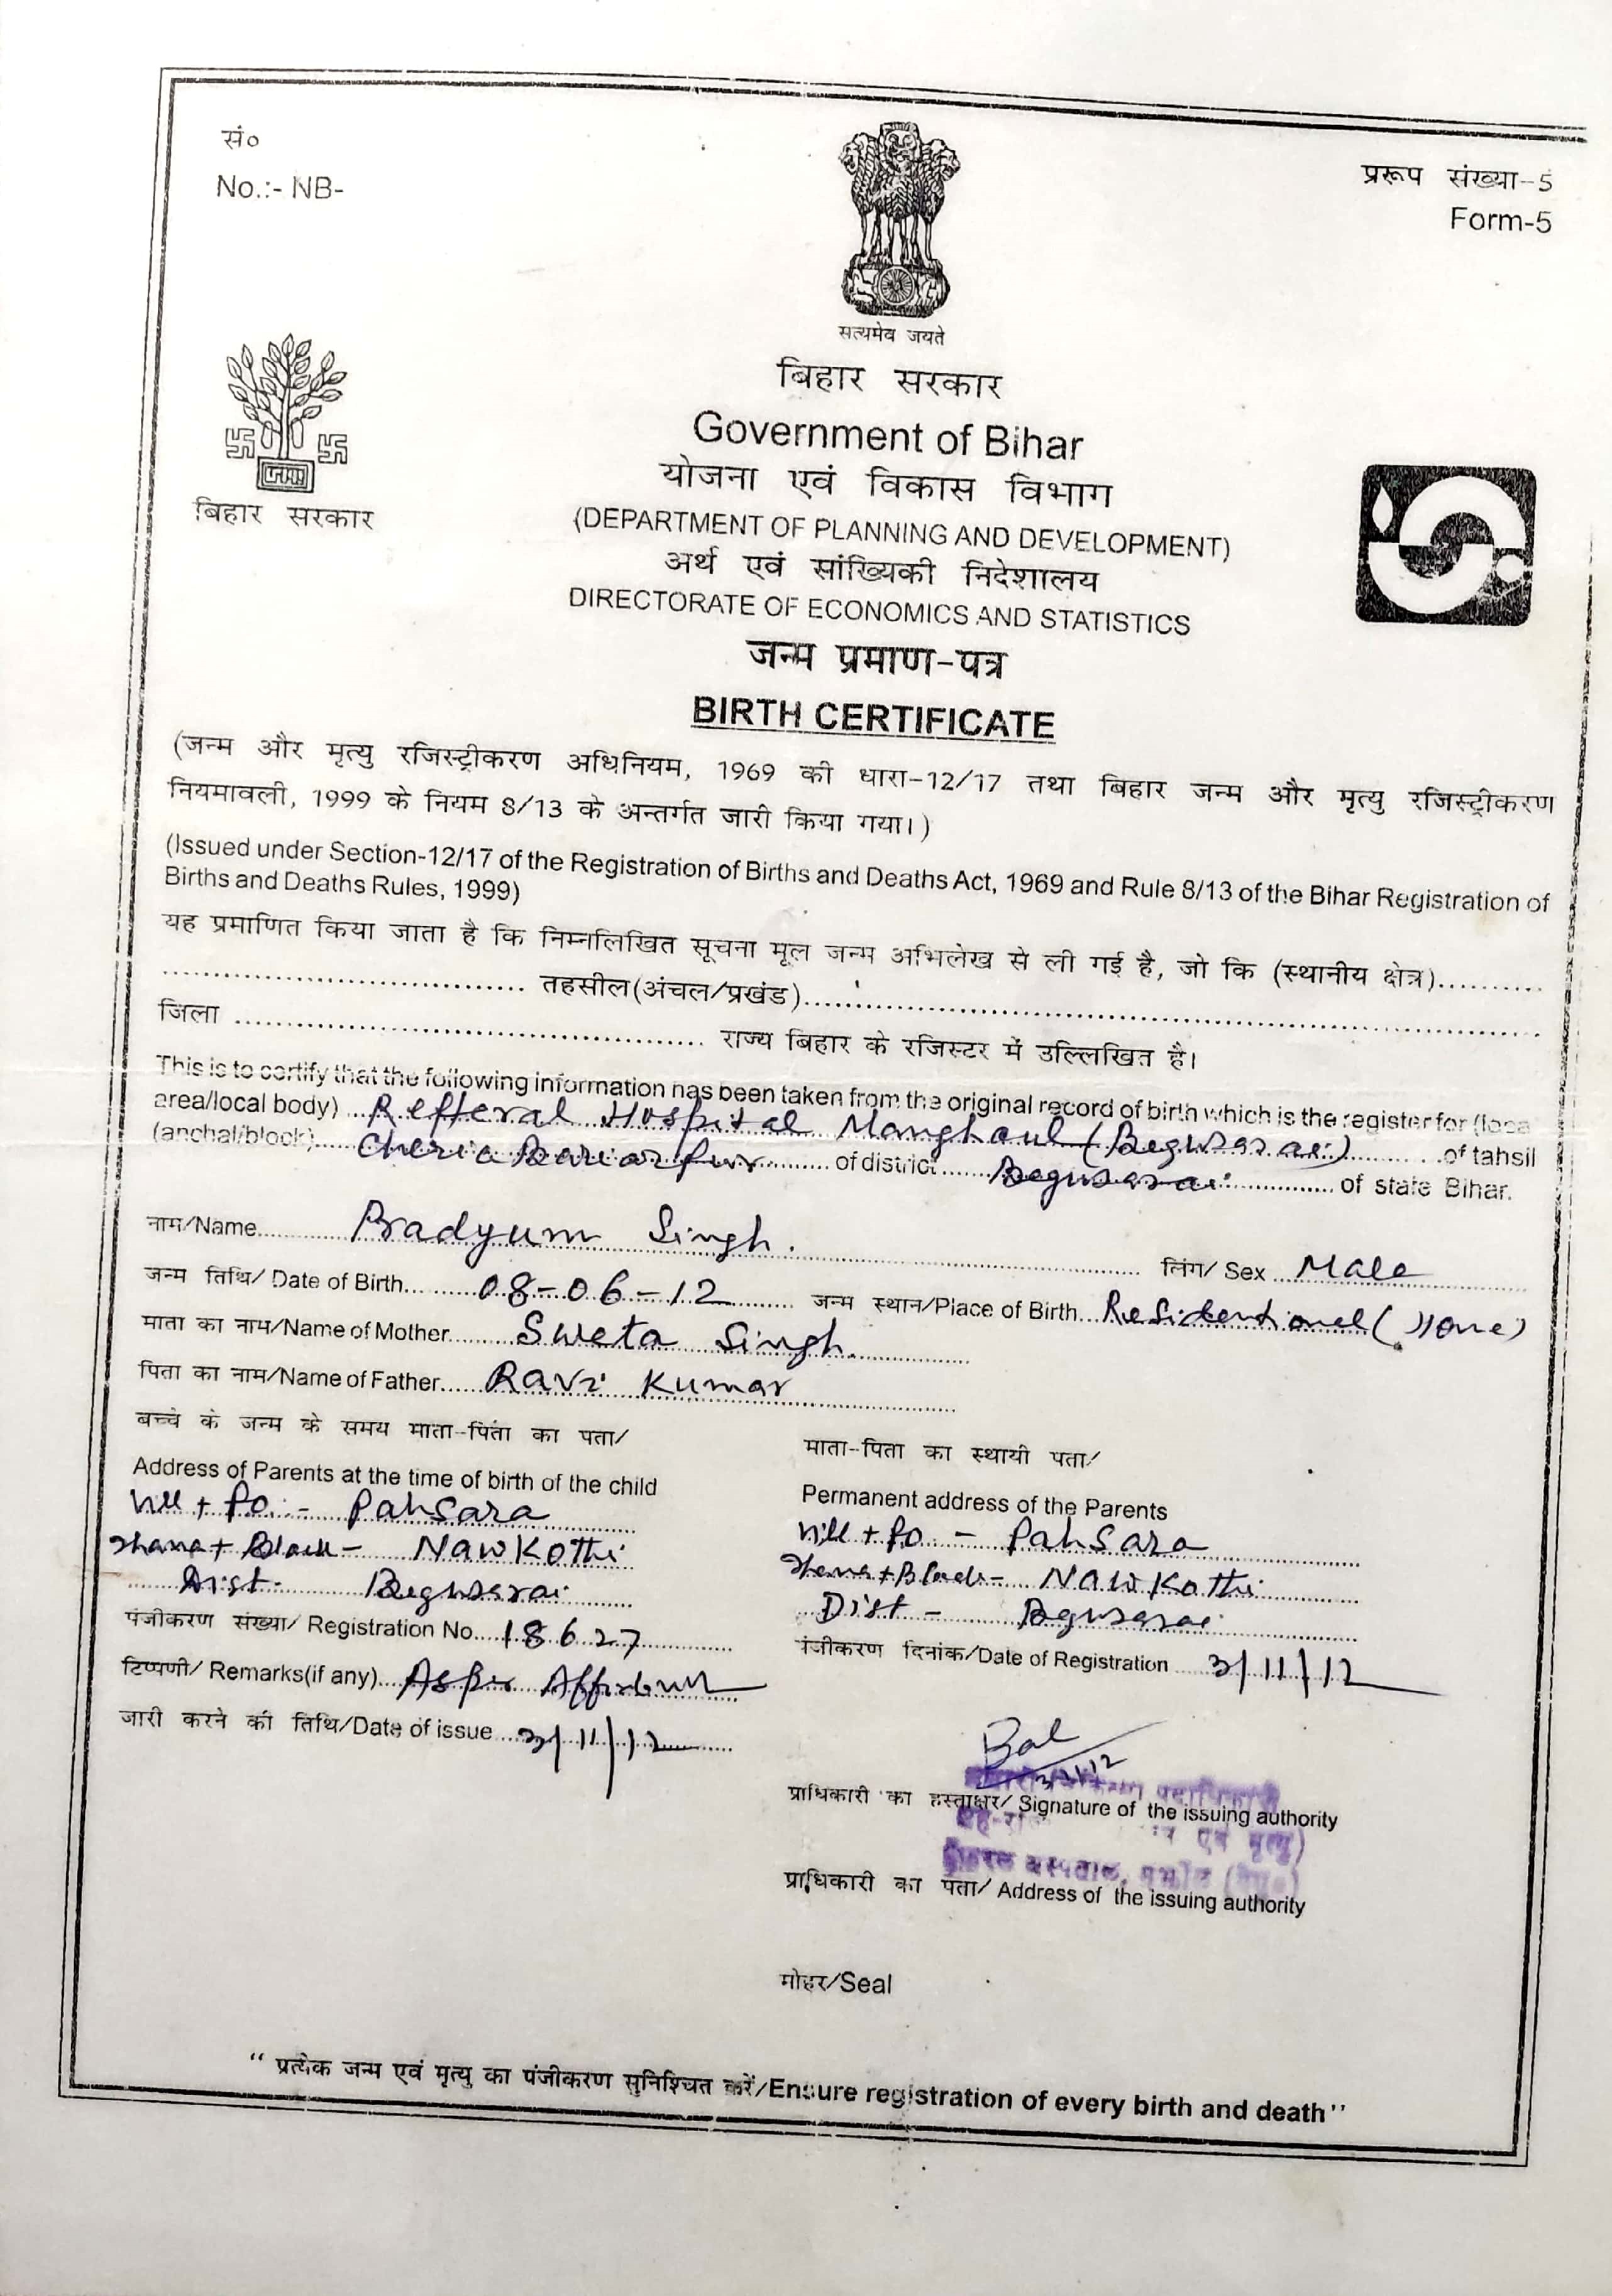 सं०
No.:- NB-
प्ररूप संख्या-5
Form-5
सत्यमेव जयते
बिहार सरकार
बिहार सरकार
Government of Bihar
योजना एवं विकास विभाग
(DEPARTMENT OF PLANNING AND DEVELOPMENT)
अर्थ एवं सांख्यिकी निदेशालय
DIRECTORATE OF ECONOMICS AND STATISTICS
जन्म प्रमाण-पत्र
BIRTH CERTIFICATE
(जन्म और मृत्यु रजिस्ट्रीकरण अधिनियम, 1969 की धारा-12/17 तथा बिहार जन्म और मृत्यु रजिस्ट्रीकरण
नियमावली, 1999 के नियम 8/13 के अन्तर्गत जारी किया गया।)
(Issued under Section-12/17 of the Registration of Births and Deaths Act, 1969 and Rule 8/13 of the Bihar Registration of
Births and Deaths Rules, 1999)
यह प्रमाणित किया जाता है कि निम्नलिखित सूचना मूल जन्म अभिलेख से ली गई है, जो कि (स्थानीय क्षेत्र)..........
................................ तहसील(अंचल/प्रखंड)................................
जिला ................................ राज्य बिहार के रजिस्टर में उल्लिखित है।
This is to certify that the following information has been taken from the original record of birth which is the register for (local
area/local body) Refferal Hospital Manghaul (Begusarai) of tahsil
(anchal/block) Cheria Bariarpur of district Begusarai of state Bihar.
नाम/Name Pradyum Singh. लिंग/ Sex Male
जन्म तिथि/ Date of Birth 08-06-12 जन्म स्थान/Place of Birth Residentional
माता का नाम/Name of Mother Sweta Singh.
पिता का नाम/Name of Father Ravi Kumar
बच्चे के जन्म के समय माता-पिता का पता/
Address of Parents at the time of birth of the child
Vill + Po.:- Pahsara
Thana + Block - Nawkothi
Dist- Begusarai
माता-पिता का स्थायी पता/
Permanent address of the Parents
Vill + Po. - Pahsara
Thana + Block - Nawkothi
Dist - Begusarai
पंजीकरण संख्या/ Registration No. 18627
पंजीकरण दिनांक/Date of Registration 3/11/12
टिप्पणी/ Remarks(if any)
जारी करने की तिथि/Date of issue 3/11/12
प्राधिकारी का हस्ताक्षर/ Signature of the issuing authority
एवं मृत्यु)
प्राधिकारी का पता/ Address of the issuing authority
मोहर/Seal
“ प्रत्येक जन्म एवं मृत्यु का पंजीकरण सुनिश्चित करें/Ensure registration of every birth and death”